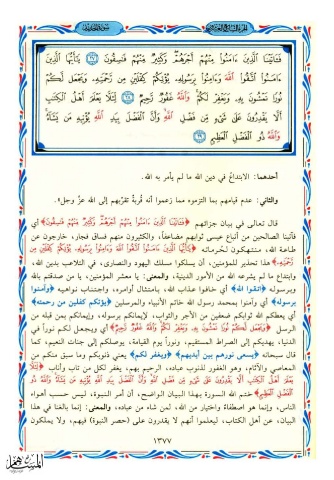 الجزء السابع والعشرون
سورة الحديد
فَـَٔاتَيْنَا ٱلَّذِينَ ءَامَنُوا۟ مِنْهُمْ أَجْرَهُمْ ۖ وَكَثِيرٌ مِّنْهُمْ فَٰسِقُونَ ﴿٢٧﴾ يَٰٓأَيُّهَا ٱلَّذِينَ
ءَامَنُوا۟ ٱتَّقُوا۟ ٱللَّهَ وَءَامِنُوا۟ بِرَسُولِهِۦ يُؤْتِكُمْ كِفْلَيْنِ مِن رَّحْمَتِهِۦ وَيَجْعَل لَّكُمْ
نُورًا تَمْشُونَ بِهِۦ وَيَغْفِرْ لَكُمْ ۚ وَٱللَّهُ غَفُورٌ رَّحِيمٌ ﴿٢٨﴾ لِّئَلَّا يَعْلَمَ أَهْلُ ٱلْكِتَٰبِ
أَلَّا يَقْدِرُونَ عَلَىٰ شَىْءٍ مِّن فَضْلِ ٱللَّهِ ۙ وَأَنَّ ٱلْفَضْلَ بِيَدِ ٱللَّهِ يُؤْتِيهِ مَن يَشَآءُ ۚ
وَٱللَّهُ ذُو ٱلْفَضْلِ ٱلْعَظِيمِ ﴿٢٩﴾
أحدهما: الابتداع في دين الله ما لم يأمر به الله.
والثاني: عدم قيامهم بما التزموه مما زعموا أنه قربة تقربهم إلى الله عز وجل».
قال تعالى في بيان جزائهم ﴿فَـَٔاتَيْنَا ٱلَّذِينَ ءَامَنُوا۟ مِنْهُمْ أَجْرَهُمْ وَكَثِيرٌ مِّنْهُمْ فَٰسِقُونَ﴾ أي
فآتينا الصالحين من أتباع عيسى ثوابهم مضاعفاً، والكثيرون منهم فساق فجار، خارجون عن
طاعة الله، منتهكون لحرماته ﴿يَٰٓأَيُّهَا ٱلَّذِينَ ءَامَنُوا۟ ٱتَّقُوا۟ ٱللَّهَ وَءَامِنُوا۟ بِرَسُولِهِۦ يُؤْتِكُمْ كِفْلَيْنِ مِن
رَّحْمَتِهِۦ﴾ هذا تحذير للمؤمنين، أن يسلكوا مسلك اليهود والنصارى، في التلاعب بدين الله،
وابتداع ما لم يشرعه الله من الأمور الدينية، والمعنى: يا معشر المؤمنين، يا من صدقتم بالله
وبرسوله ﴿اتقوا الله﴾ أي خافوا عذاب الله، بامتثال أوامره، واجتناب نواهيه ﴿وآمنوا
برسوله﴾ أي وآمنوا بمحمد رسول الله خاتم الأنبياء والمرسلين ﴿يؤتكم كفلين من رحمته﴾
أي يعطكم الله ثوابكم ضعفين من الأجر والثواب، لإيمانكم برسوله، وإيمانكم بمن قبله من
الرسل ﴿وَيَجْعَل لَّكُمْ نُورًا تَمْشُونَ بِهِۦ وَيَغْفِرْ لَكُمْ وَٱللَّهُ غَفُورٌ رَّحِيمٌ﴾ أي ويجعل لكم نوراً في
الدنيا، يهديكم إلى الصراط المستقيم، ونوراً يوم القيامة، يوصلكم إلى جنات النعيم، كما
قال سبحانه ﴿يسعى نورهم بين أيديهم﴾ ﴿ويغفر لكم﴾ يعني ذنوبكم وما سبق منكم من
المعاصي والآثام، وهو الغفور لذنوب عباده، الرحيم بهم، يغفر لكل من تاب وأناب ﴿لِّئَلَّا
يَعْلَمَ أَهْلُ ٱلْكِتَٰبِ أَلَّا يَقْدِرُونَ عَلَىٰ شَىْءٍ مِّن فَضْلِ ٱللَّهِ وَأَنَّ ٱلْفَضْلَ بِيَدِ ٱللَّهِ يُؤْتِيهِ مَن يَشَآءُ وَٱللَّهُ ذُو
ٱلْفَضْلِ ٱلْعَظِيمِ﴾ ختم الله السورة بهذا البيان الواضح، أن أمر النبوة، ليس حسب أهواء
الناس، وإنما هو اصطفاء واختيار من الله، لمن شاء من عباده، والمعنى: إنما بالغنا في هذا
البيان، عن أهل الكتاب، ليعلموا أنهم لا يقدرون على (حصر النبوة) فيهم، ولا يملكون
١٣٧٧